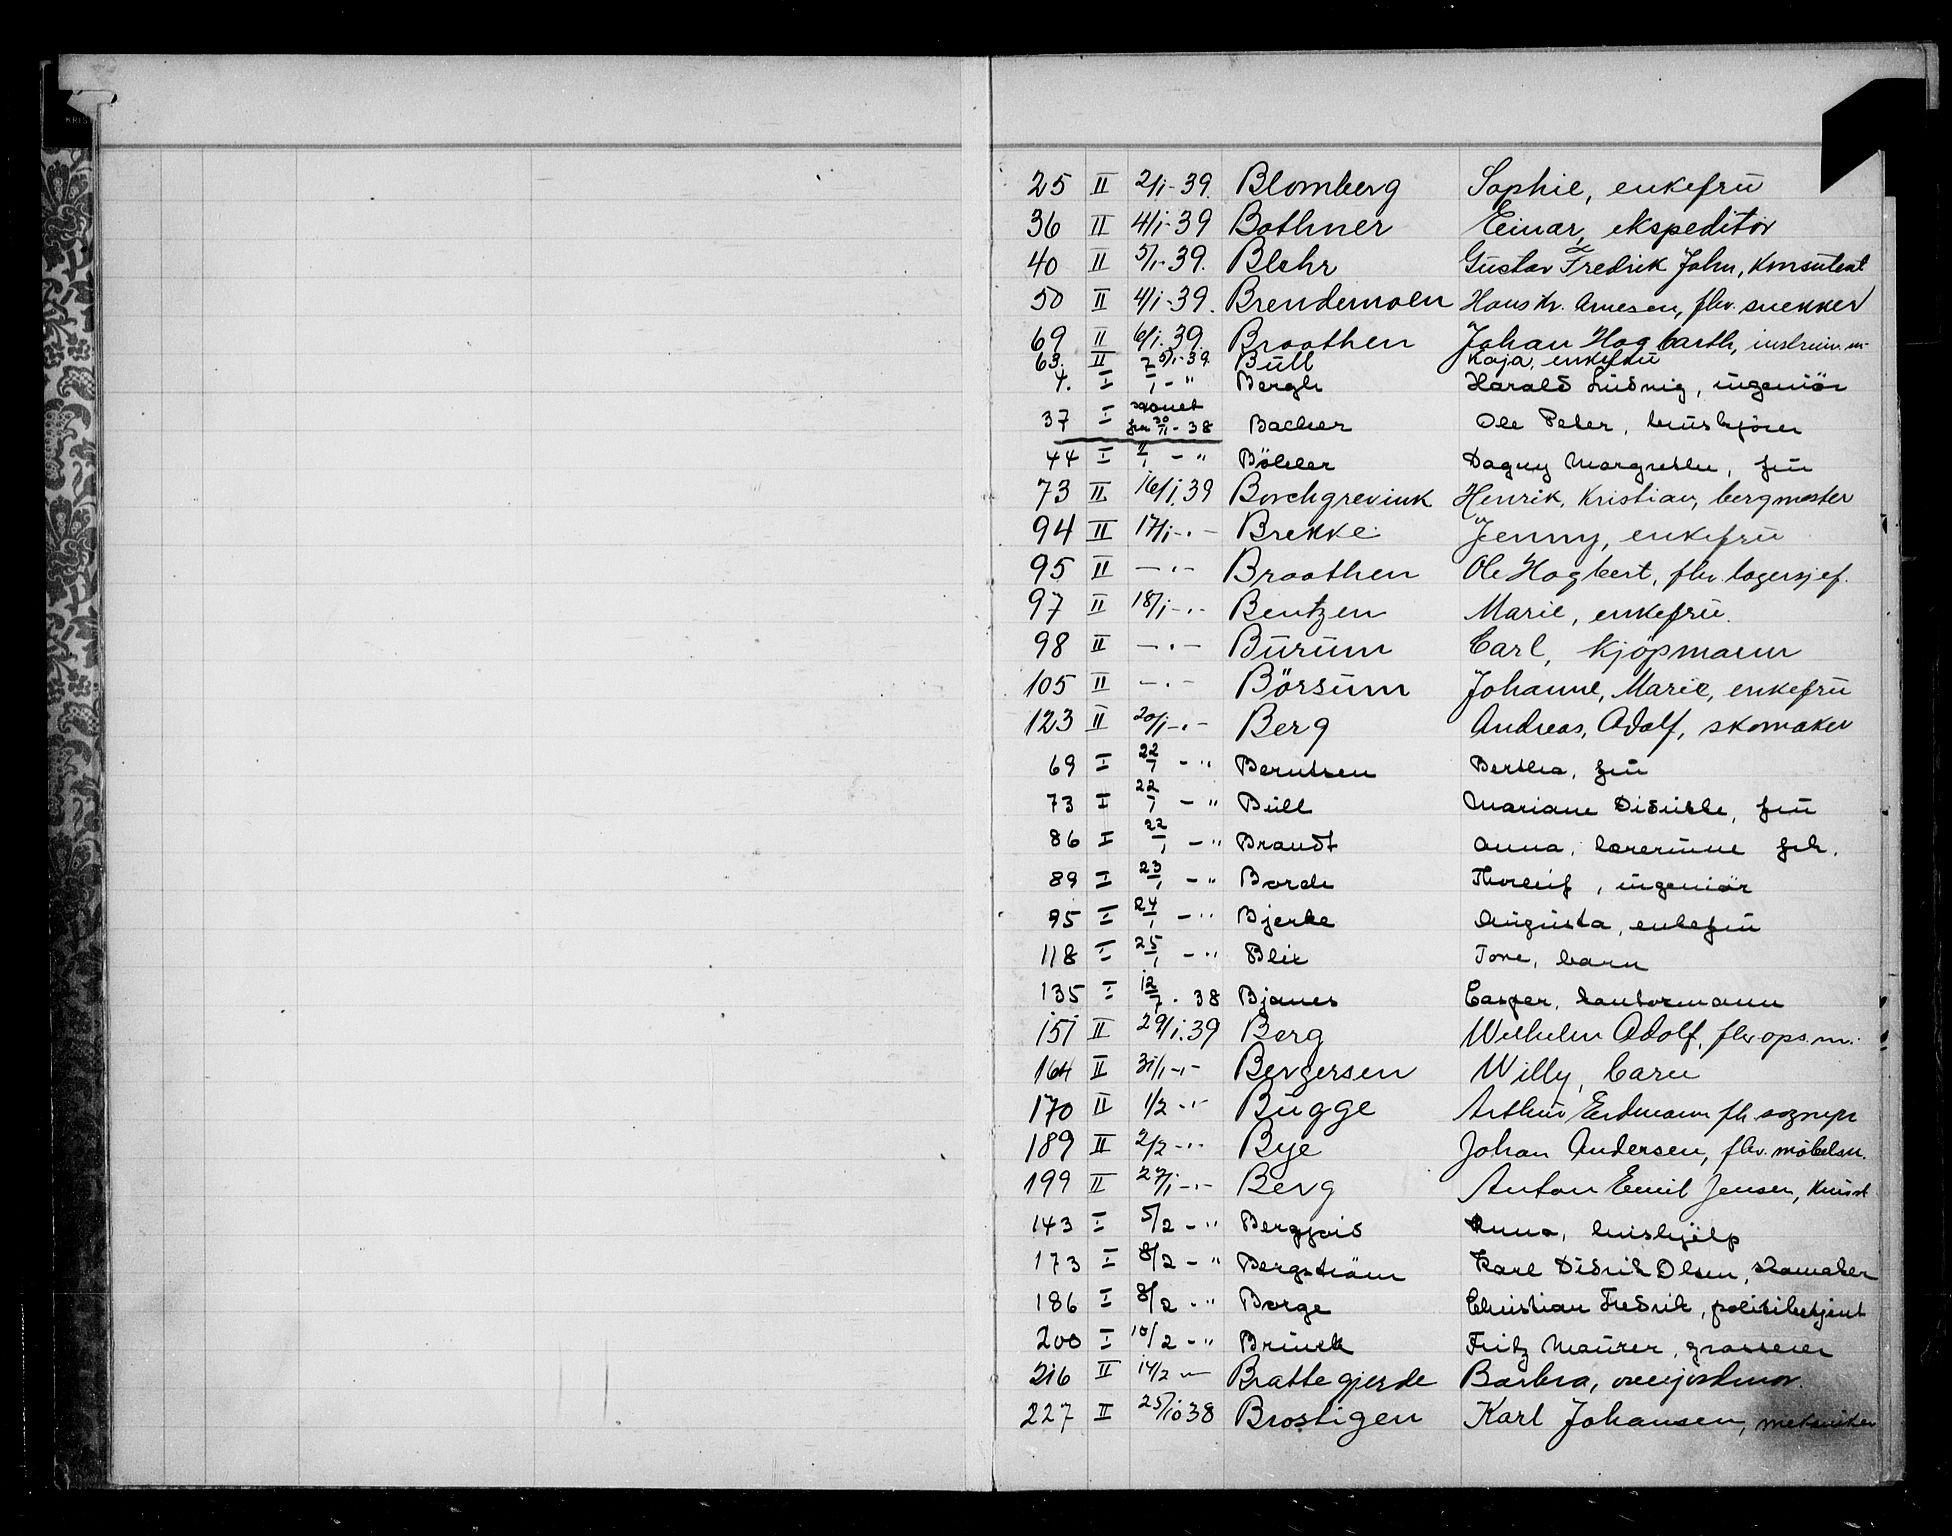 KRIS
25 II 2/1-39. Blomberg Sophie, enkefru
36 II 4/1-39 Bothner Einar, ekspeditør
40 II 5/1-39. Blehr Gustav Fredrik John, konsulent
50 II 4/1-39. Brendemoen Hans Kr. Arnesen, fhv. snekker
69 II 6/1.39. Braathen Johan Hagbarth, instrum.m.
63. II 5/1-39 Bull Kaja, enkefru
4. I 7/1-" Bergh Harald Ludvig, ingeniör
37 I fra 30/11-38 Bacher Ole Peter,
44 I -" Böhler Dagny Margrethe, fru
73 II 16/1.39 Borchgrevink Henrik, Kristian, bergmester
94 II 17/1-.- Brekke Jenny, enkefru
95 II -.- Braathen Ole Hagbert, fhv. lagersjef.
97 II 18/1-.- Bentzen Marie, enkefru.
98 II -.- Burum Carl, kjöpmann
105 II -.- Börsum Johanne, Marie, enkefru
123 II 20/1-.- Berg Andreas, Adolf, skomaker
69 I 22/1 -" Berntsen Bertha, fru
73 I 22/1 -" Bull Mariane Didrikke, fru
86 I 22/1 -" Brandt Anna, lærerinne frk.
89 I 23/1 -" Borch Thorleif, ingeniør
95 I 24/1 -" Bjerke Augusta, enkefru
118 I 25/1 -" Blix Tone, barn
135 I 12/7. 38 Bjanes Casper, kontormann
151 II 29/1.39 Berg Wilhelm Adolf, fhv ops.m.
164 II 31/1-.- Bergersen Willy, barn
170 II 1/2 -.- Bugge Arthur Erdmann fh. sognepr
189 II 2/2 -.- Bye Johan Andersen, fhv. möbelsn.
199 II 27/1-.- Berg Anton Emil Jensen,
143 I 5/2 -" Anna, hushjälp
173 I 8/2 -" Bergström Karl Didrik Olsen, skomaker
186 I 8/2 -" Borge Christian Fredrik, politibetjent
200 I 10/2 -" Brinck Fritz Maurer, grosserer
216 II 14/2 -"- Brattegjerde Barbra,
227 II 25/10 38 Brostigen Karl Johansen, mekaniker